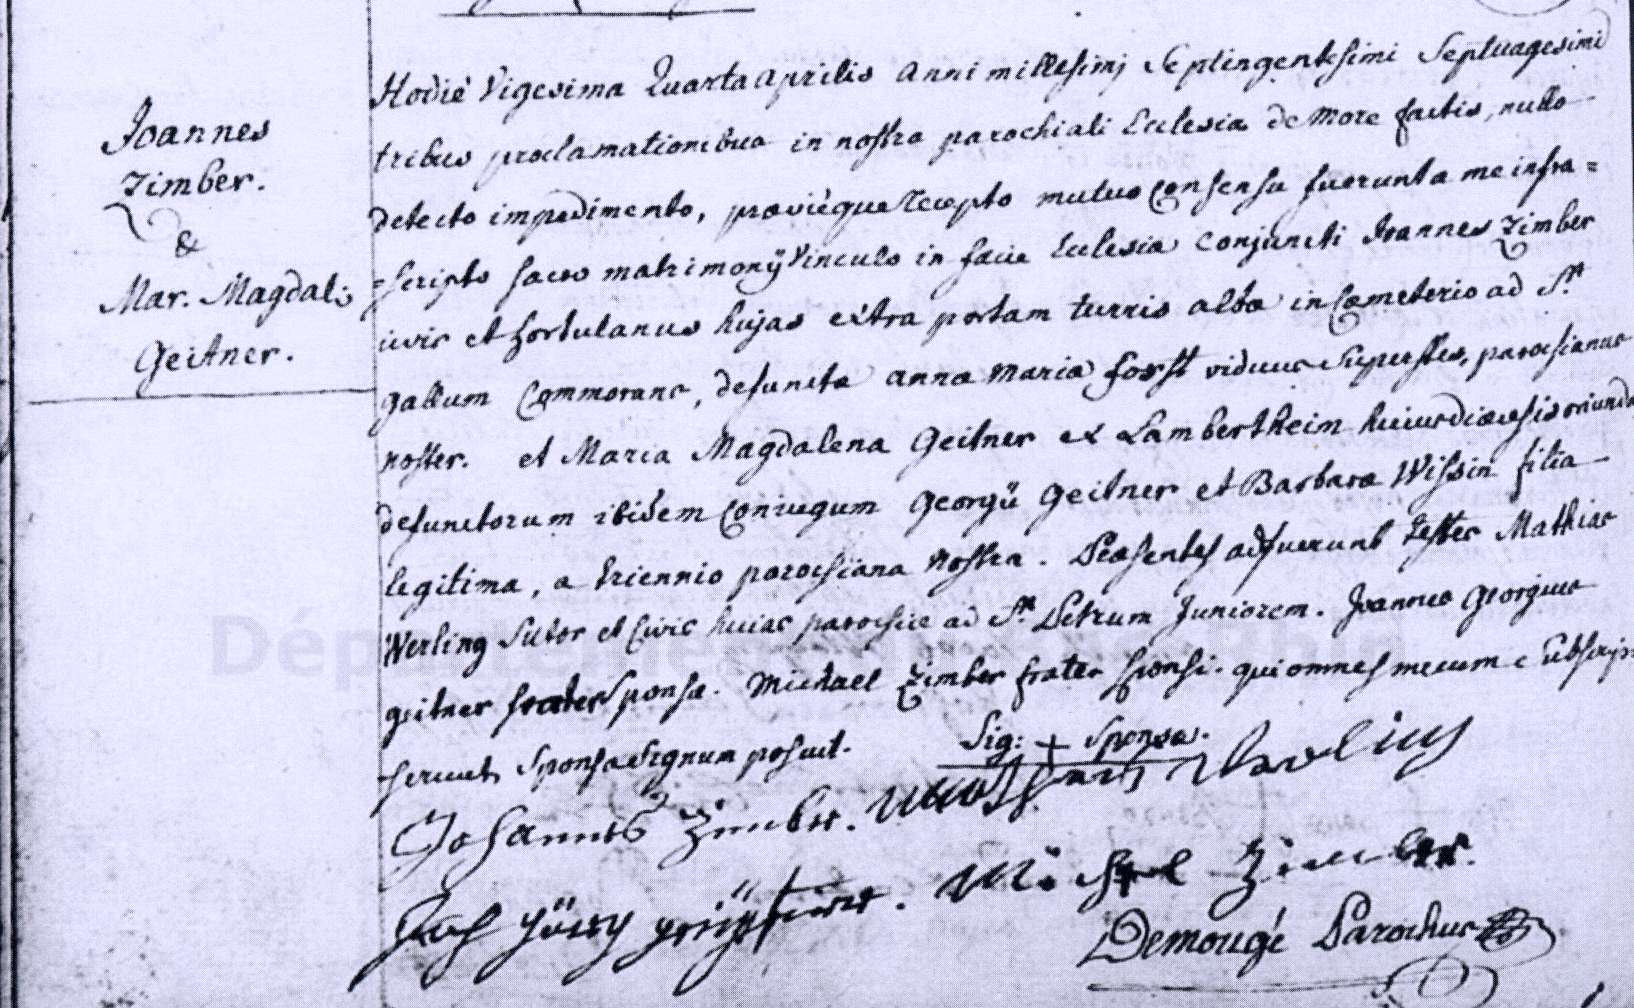 Joannes
Zimber.
&
Mar. Magdal:
Geitner.
Hodie Vigesima Quarta aprilis anni millesimj Septingentesimi Septuagesimi
tribus proclamationibus in nostra parochiali Ecclesia de more factis, nullo
detecto impedimento, praeviéque recepto mutuo Consensu fuerunt a me infra=
=scripto sacro matrimonÿ Vinculo in facie Ecclesia Conjuncti Joannes Zimber
civis et hortulanus hujas extra portam turris alba in Cameterio ad St.
gallum Commorans, defuncta anna Maria forst viduus Superstes, parochianus
noster. et Maria Magdalena Geitner ex Lambertheim huius diaecesis oriunda
defunctorum ibidem Coniugum Georgÿ Geitner et Barbara Wissin filia
legitima, a triennio parochiana nostra. Praesentes adfuerunt testes Mathias
Werling Sutor et Civis huias parochia ad St. Petrum Juniorem. Joannes Georgius
geitner frater Sponsa. Michael Zimber frater Sponsi. qui omnes mecum Subscrip=
=serunt, Sponsa Signum posuit.
Sig: + Sponsa.
Johannes Zimber.
Michel Zimber.
Demougé Parochus
Département Rhin